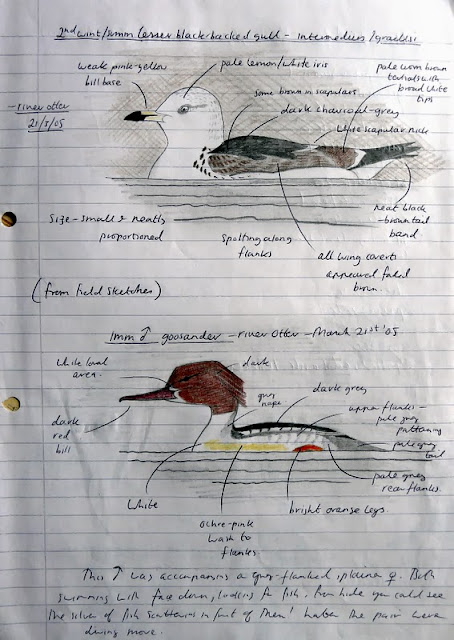 2nd wint/summ lesser black backed gull - intermedius/graellsi
weak pink-yellow
bill base
pale lemon/white iris
pale worn brown
tertials with
broad white
tips
some brown in scapulars
dark charcoal-grey
- river Otter
21/3/05
White scapular nick
Size - small & neatly
proportioned
Spotting along
flanks
all wing coverts
appeared faded
brown.
neat black
-brown tail
band
(from field sketches)
1mm ♂ goosander - river Otter - March 21st '05
White loral
area.
dark
grey
nape
dark grey
upper flanks -
pale grey
patterning
pale grey
tail
dark
red
bill
pale grey
rear flanks.
White
ochre-pink
wash to
flanks
bright orange legs.
This ♂ was accompanying a grey-flanked, ♀. Both
swimming with face down, looking for fish. From hide you could see
the silver of fish scattering in front of them! the pair were
diving more.